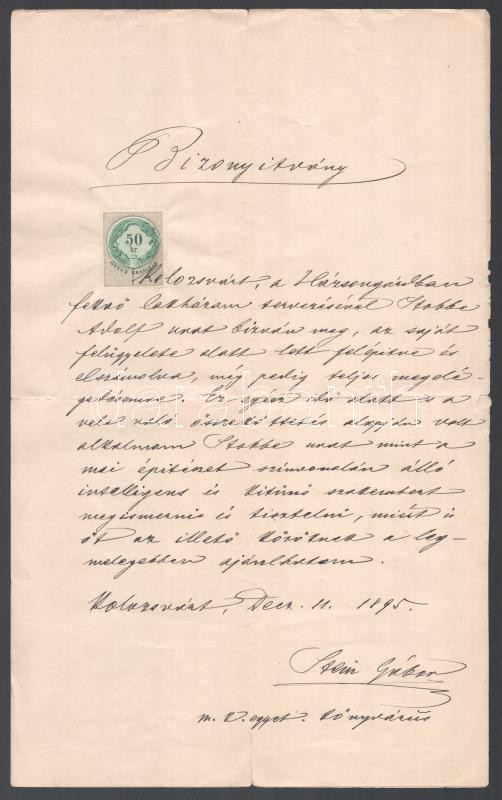 Bizonyitvány
50
kr.
Kolozsvárt, a Házsongárdban
fekvő lakházam tervezésével Stobbe
Adolf urat bizván meg, az saját
felügyelete alatt lett felépitve és
elszámolva, még pedig teljes megelé-
gedésemre. Ez egész idő alatt s a
vele való összeköttetés alapján volt
alkalmam Stobbe urat mint a
mai épitészet szinvonalán álló
intelligens és kitünő szakembert
megismerni és tisztelni, miért is
őt az illető köröknek a leg-
melegebben ajánlhatom.
Kolozsvárt, Decz. 11. 1895.
Stein Gábor
m. k. egyet. könyvárus
darabanth